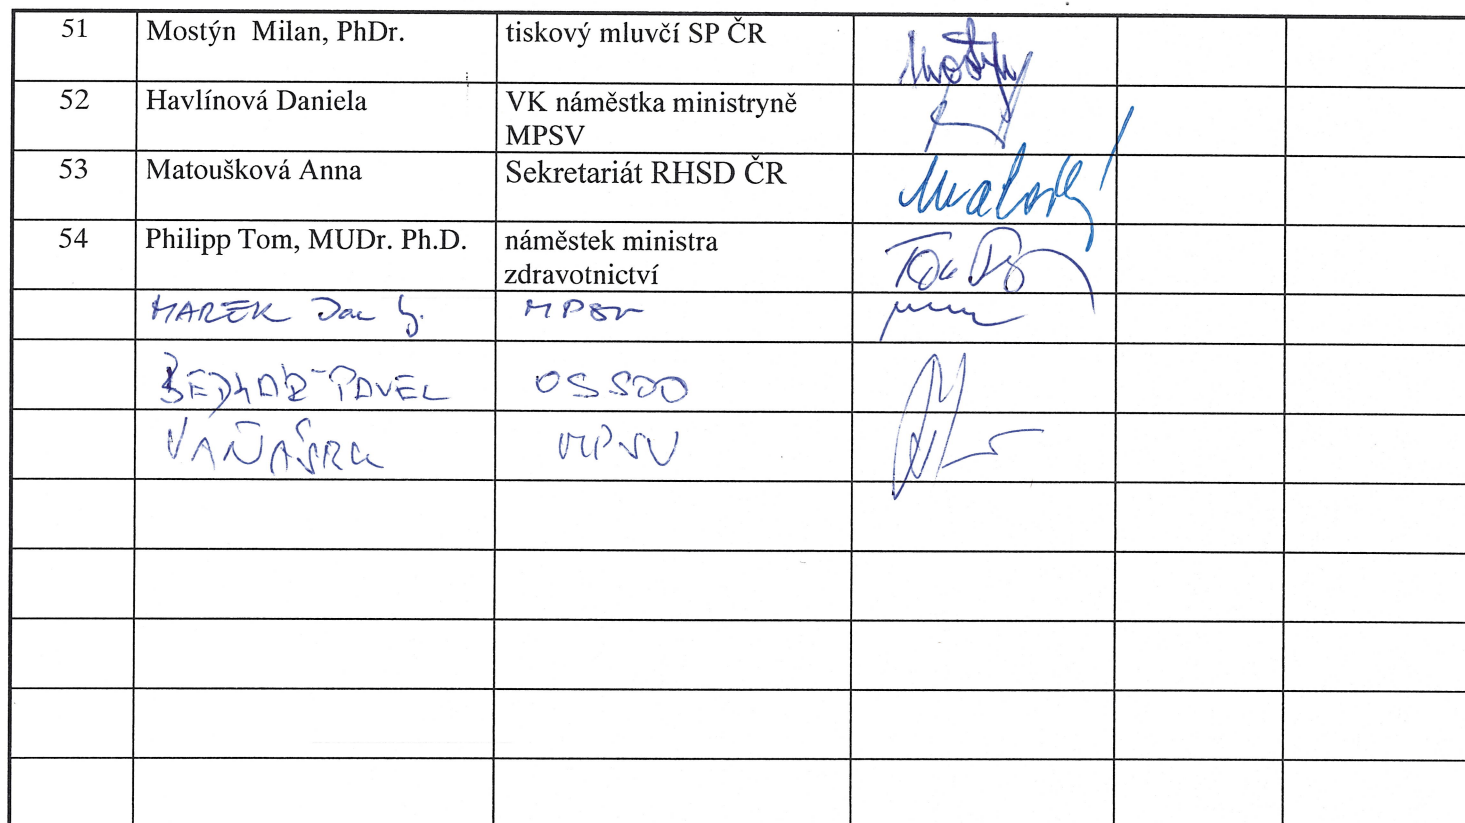 51 Mostýn Milan, PhDr. tiskový mluvčí SP ČR
52 Havlínová Daniela VK náměstka ministryně
MPSV
53 Matoušková Anna Sekretariát RHSD ČR
54 Philipp Tom, MUDr. Ph.D. náměstek ministra
zdravotnictví
MAREK MPSV
PAVEL
MPSV